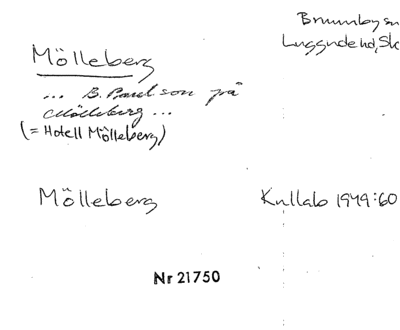 Brunnby sn
Luggude hd, Sk
Mölleberg
... B. Paulson på
Mölleberg ...
(= Hotell Mölleberg)
Mölleberg
Kullab 1949:60
Nr 21750